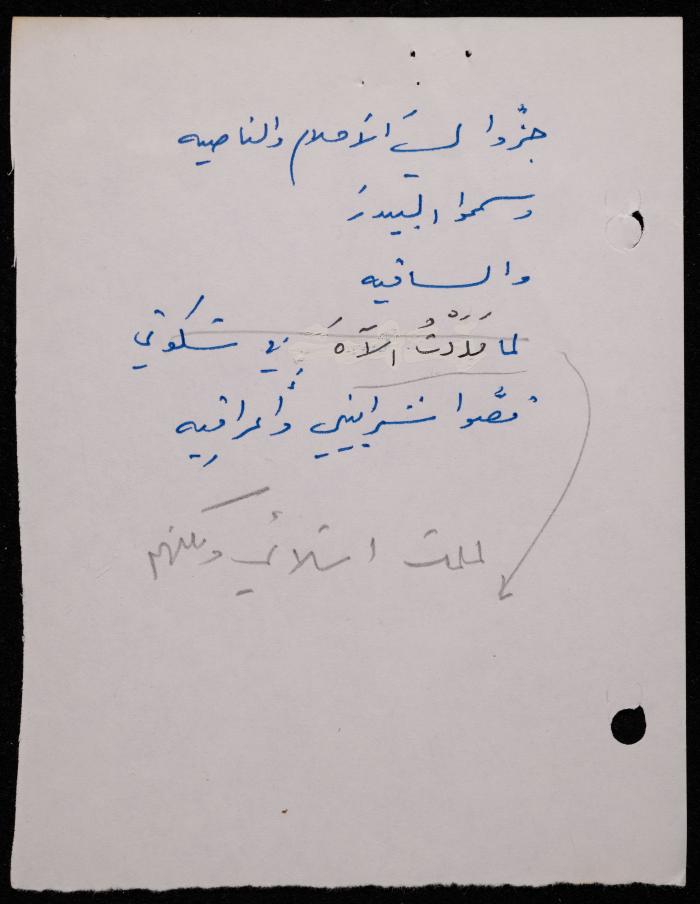 جزُّوا لِيَ الأحلام والناصيه
وسمموا البيدرَ
والساقيه
لما مَدَدْتُ الآهَ في شكوتي
قصُّوا شراييني وأعراقِيه
لملمت اشلائي ولكنهم